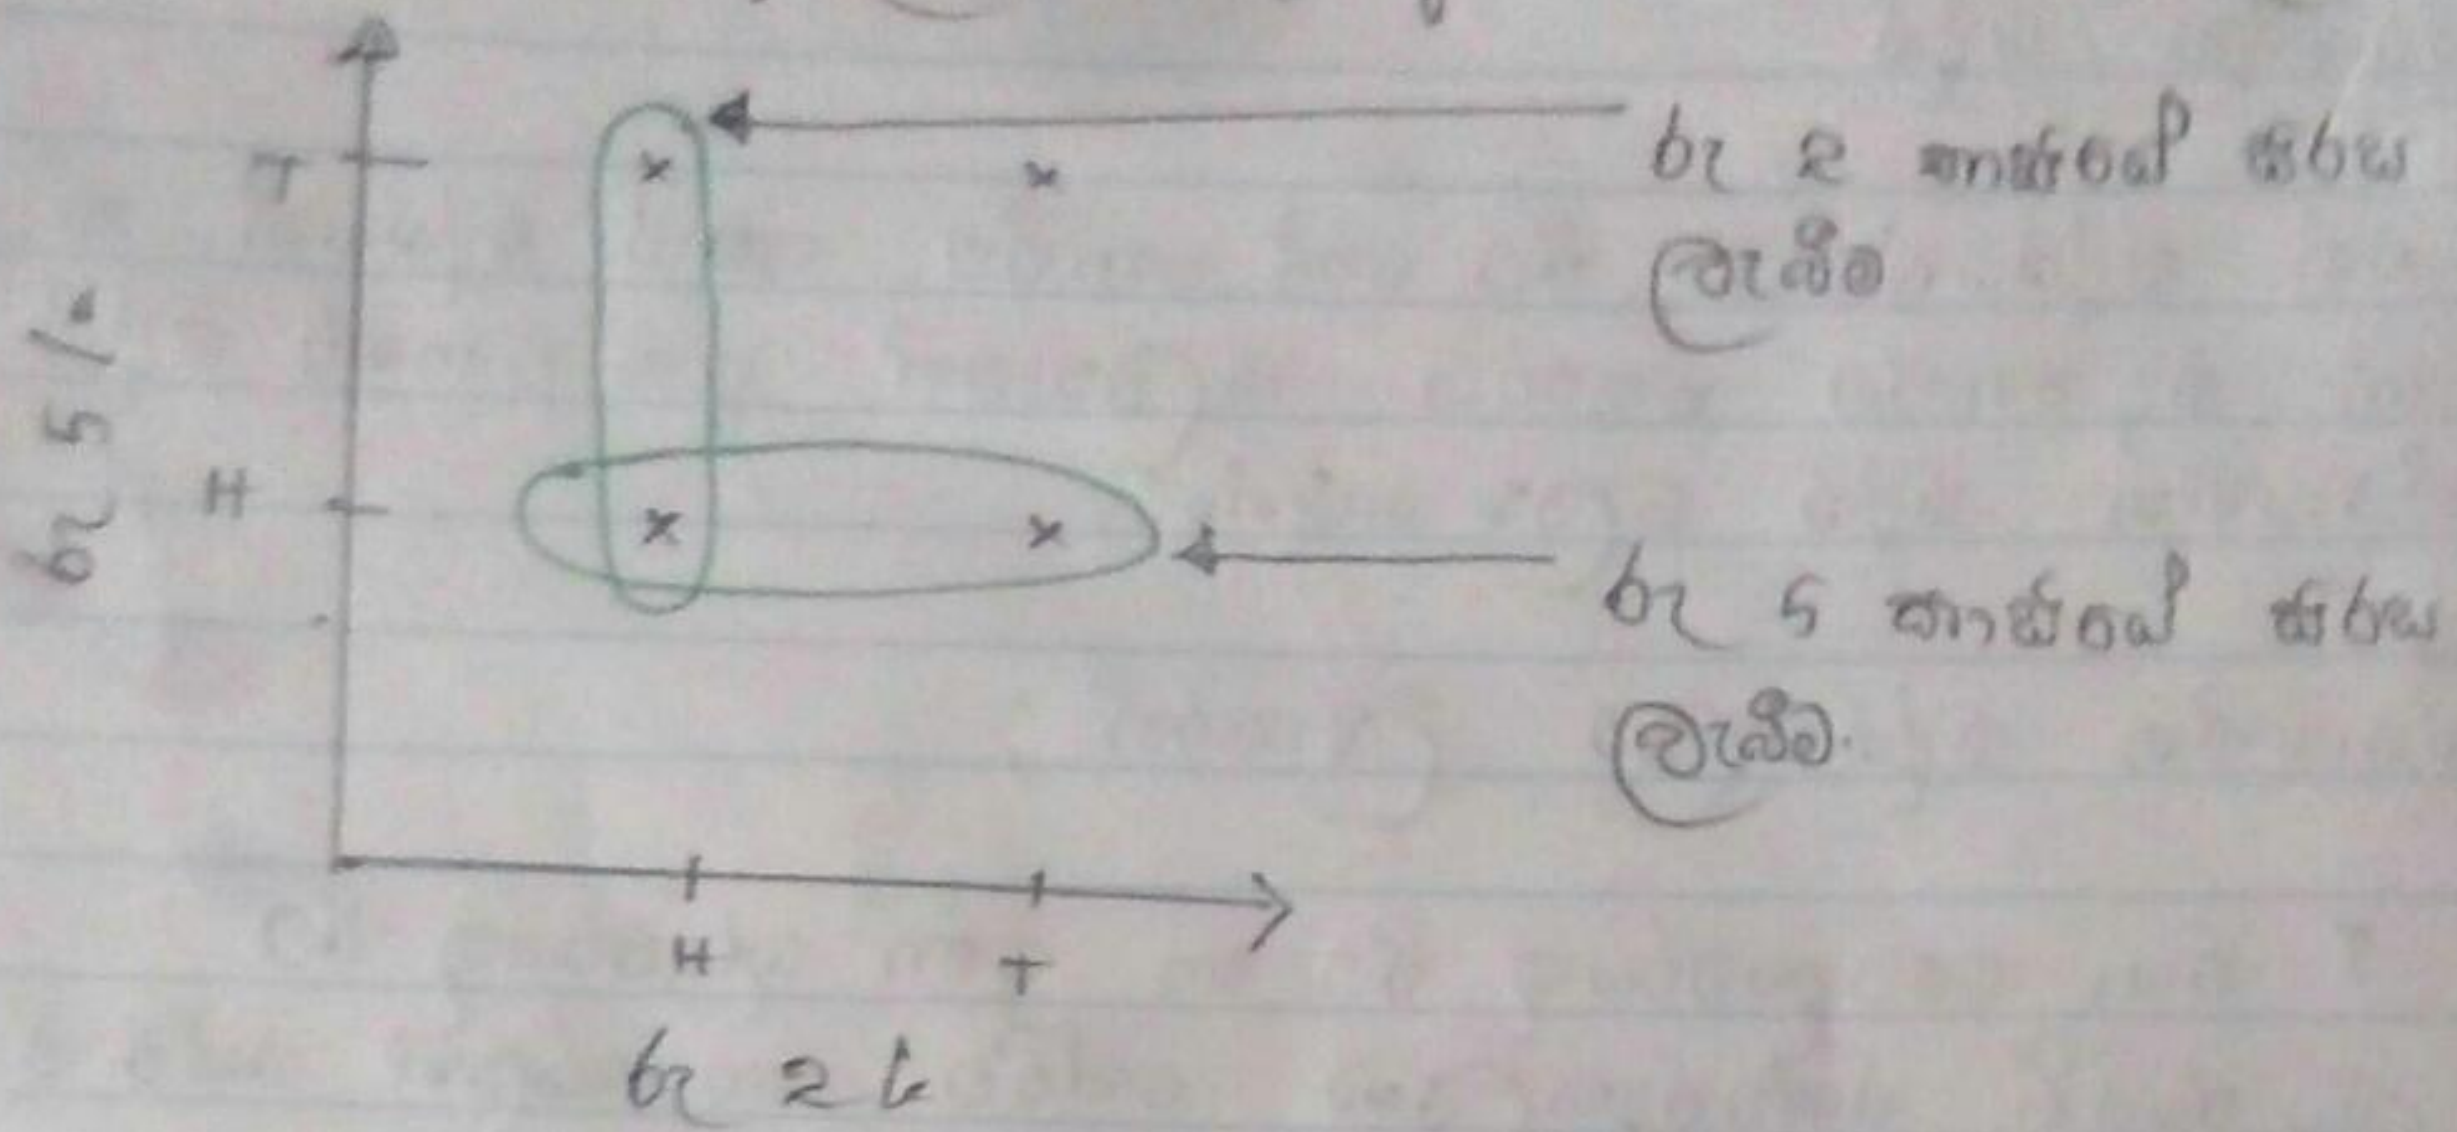 T
රු 2 කාසියේ සිරස
ලැබීම
රු 5/-
H
රු 5 කාසියේ සිරස
ලැබීම.
H T
රු 2/-